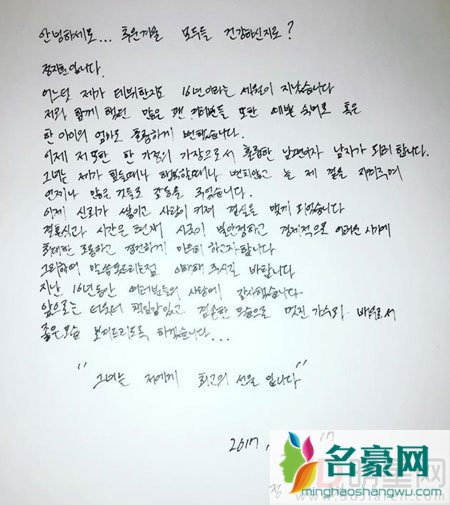 안녕하세요... 추운겨울 모두들 건강하신지요?
정지훈입니다.
어느덧 제가 데뷔한지도 16년이라는 세월이 지났습니다
저와 함께 했던 많은 팬 여러분들 또한 예쁜 숙녀로 혹은
한 아이의 엄마로 훌륭하게 변했습니다.
이제 저 또한 한 가정의 가장으로서 훌륭한 남편이자 남자가 되려 합니다.
그녀는 제가 힘들때나 행복할때나 변치않고 늘 제 곁을 지켜주며
언제나 많은 것들로 감동을 주었습니다.
이제 신뢰가 쌓이고 사랑이 커져 결실을 맺게 되었습니다
결혼식과 시간은 현재 시국이 불안정하고 경제적으로 어려운 시기에
최대한 조용하고 경건하게 마무리 하고자합니다
그리하여 말씀못드리는점 이해해 주시길 바랍니다
지난 16년동안 여러분들의 사랑에 감사했습니다
앞으로는 더욱더 책임감있고 겸손한 모습으로 멋진 가수와 배우로서
좋은모습 보여드리도록 하겠습니다...
"그녀는 저에게 최고의 선물 입니다"
2017. 17
名豪网
minghaoshangwu.com